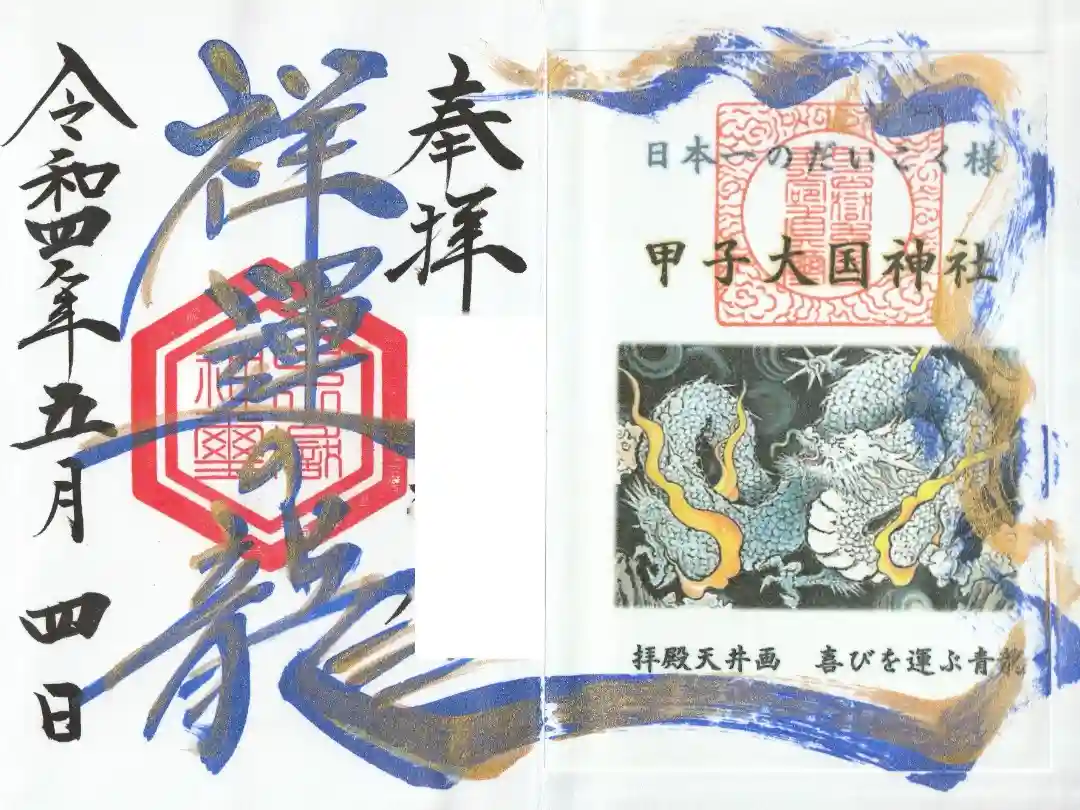 日本一のだいこく様
甲子大国神社
拝殿天井画 喜びを運ぶ青龍
奉拝
祥運の龍
令和四年五月四日